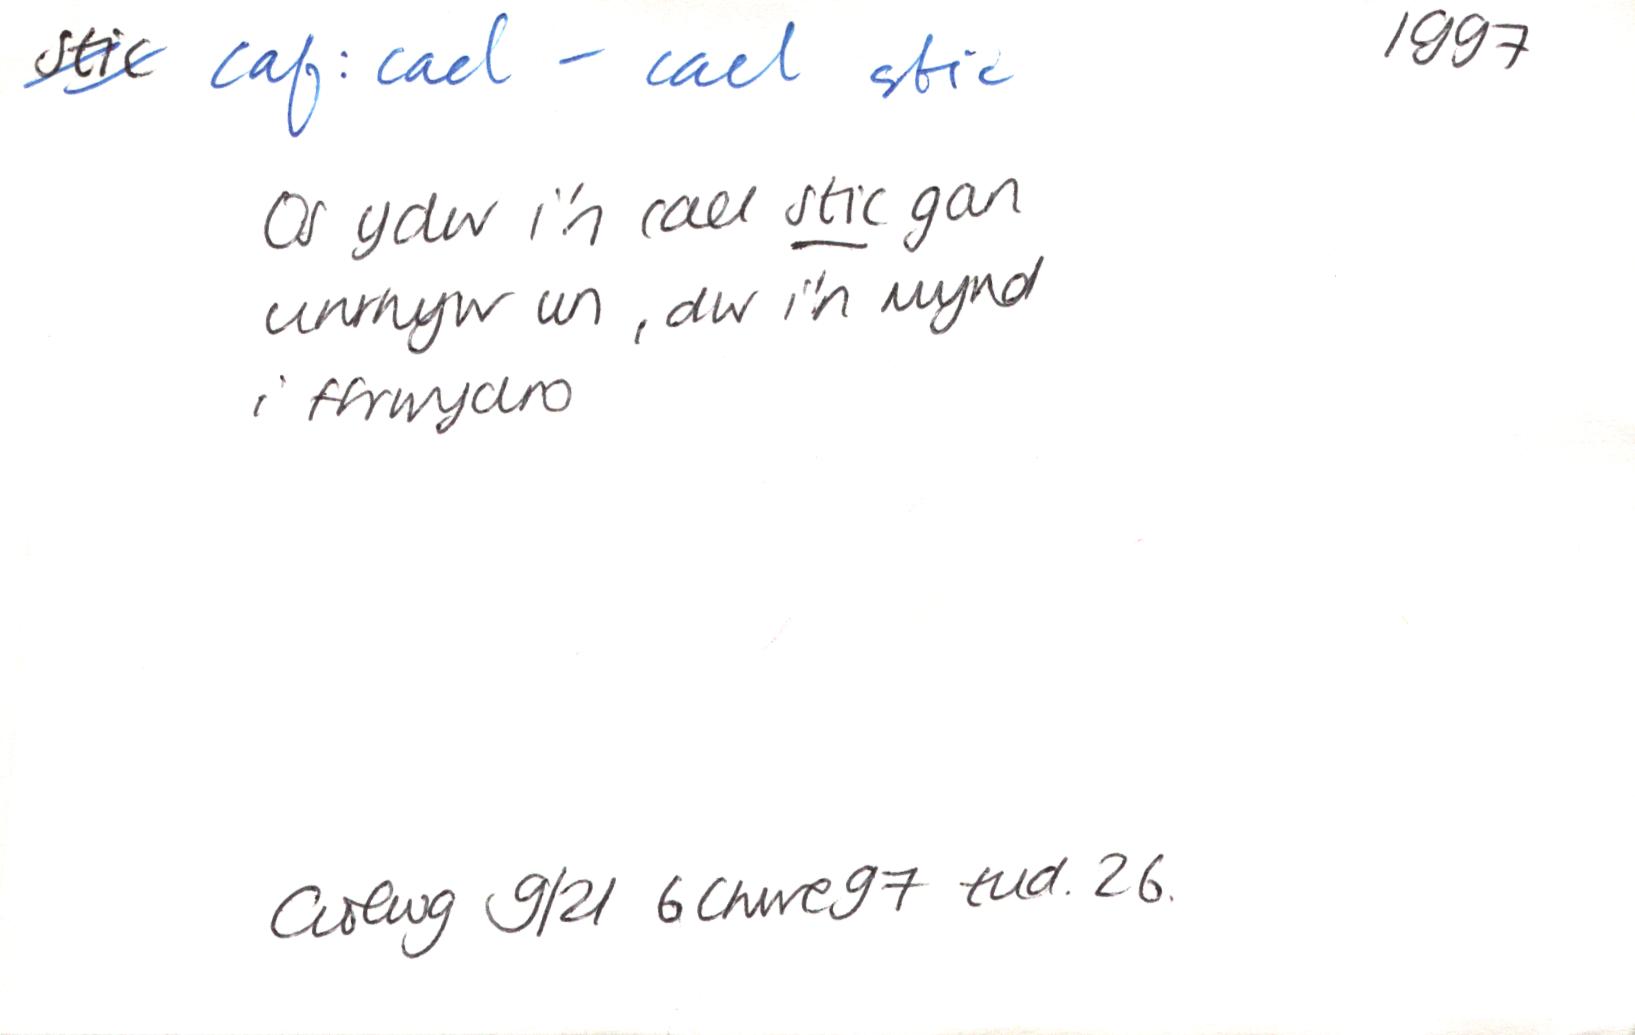 stic caf: cael - cael stic 1997
Os ydw i'n cael stic gan
unrhyw un, dw i'n mynd
i ffrwydro
Golwg 9/21 6 Chwe 97 tud. 26.